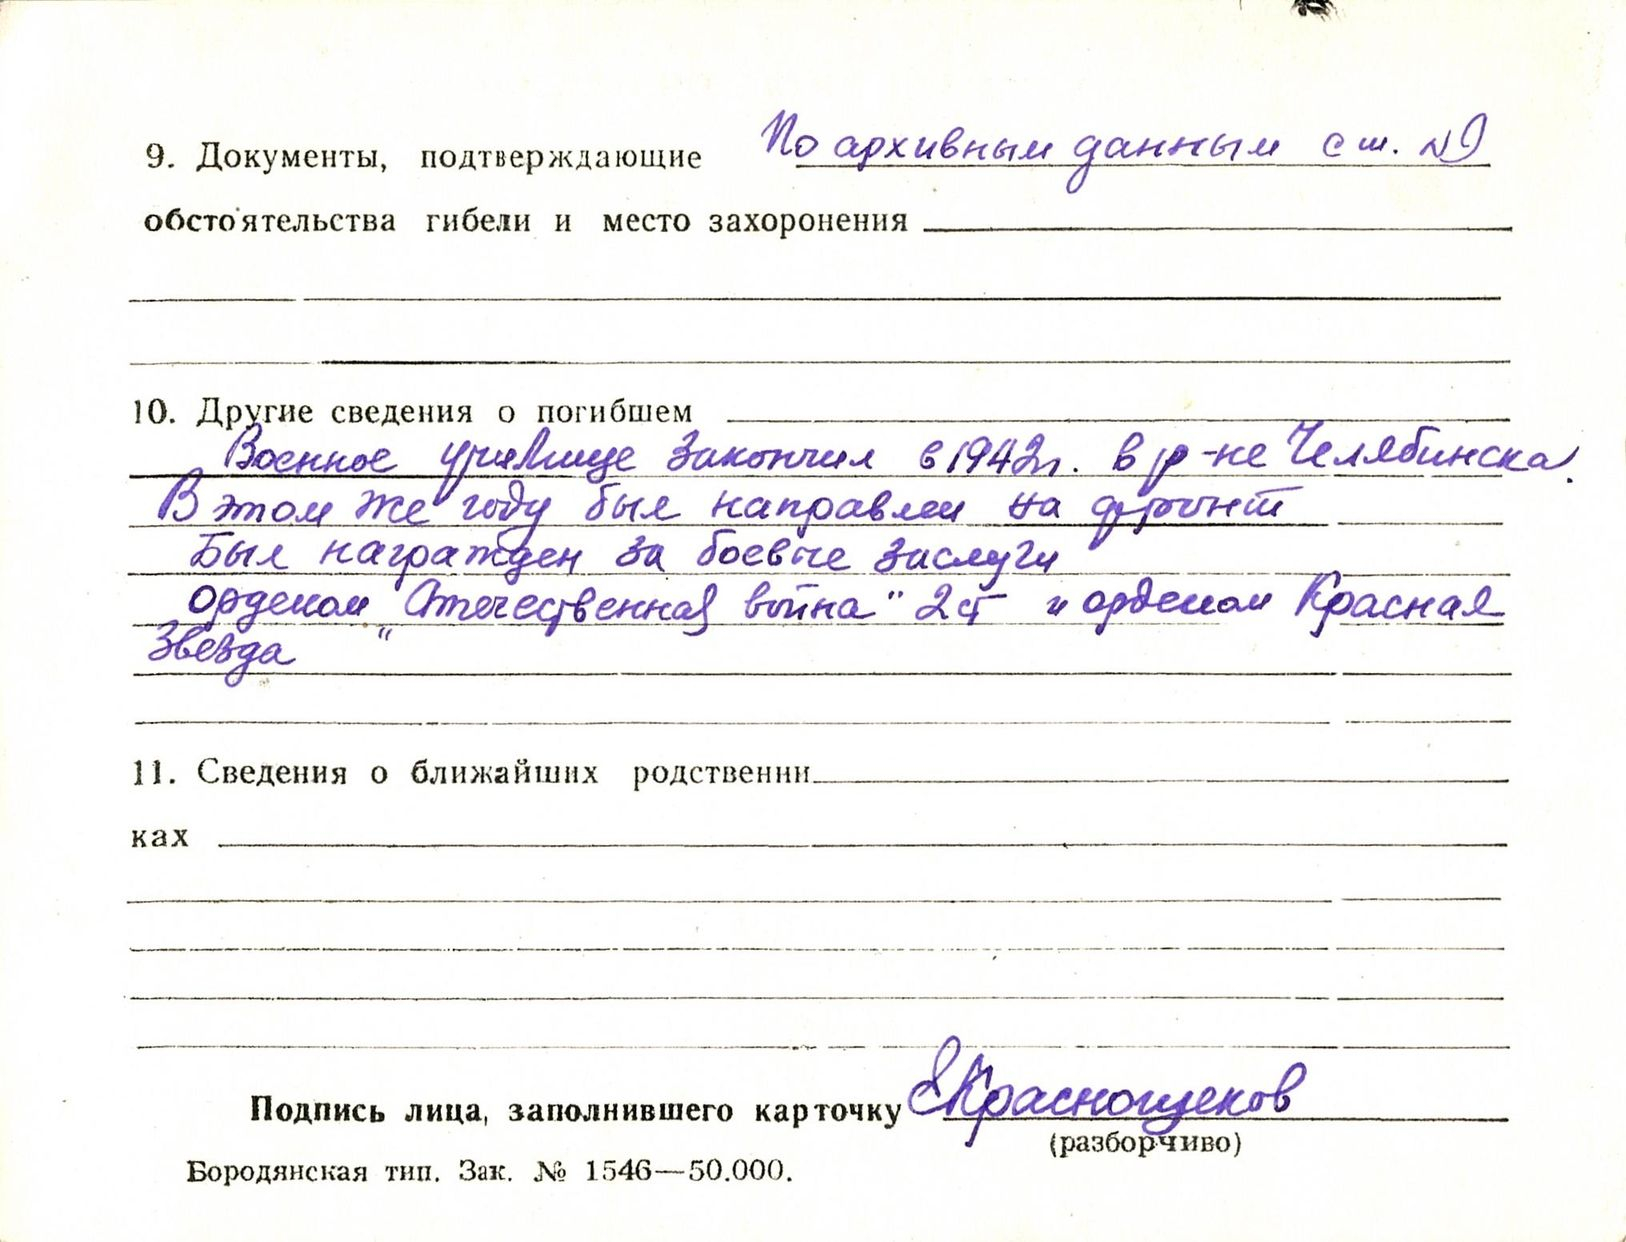 9. Документы, подтверждающие По архивным данным с ш. №9
обстоятельства гибели и место захоронения
10. Другие сведения о погибшем
Военное училище закончил в 1942 г. в р-не Челябинска.
В этом же году был направлен на фронт
Был награжден за боевые заслуги
орденом "Отечественная война" 2 ст и орденом Красная
Звезда "
11. Сведения о ближайших родственни
ках
Подпись лица, заполнившего карточку Краснощеков
(разборчиво)
Бородянская тип. Зак. № 1546—50.000.